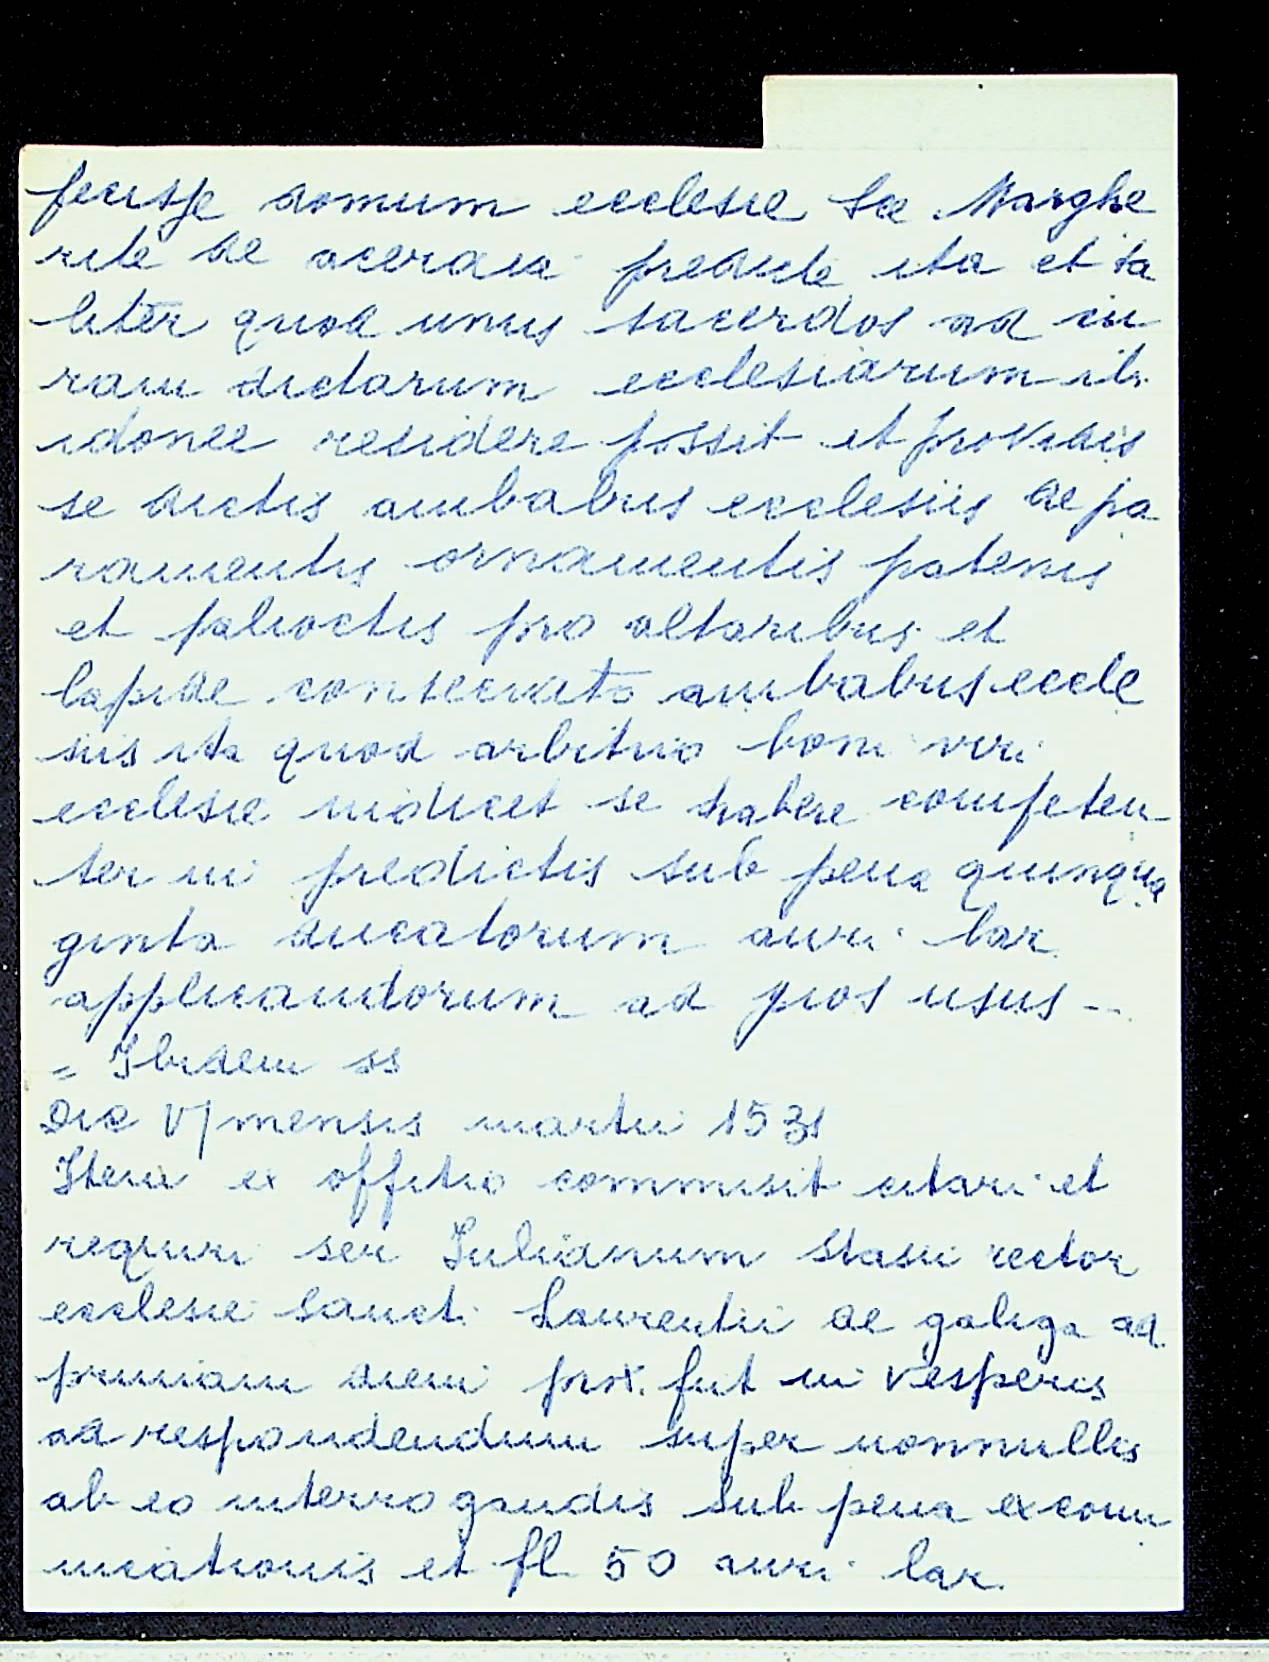 fecisse domum ecclesie Sce Marghe
rite de aceraia predicte ita et ta
liter quod unus sacerdos ad cu
ram dictarum ecclesiarum ibi
idonee residere possit et providis
se dictis ambabus ecclesiis de pa
ramentis ornamentis patenis
et palioctis pro altaribus et
lapide consecrato ambabus eccle
siis ita quod arbitrio boni viri
ecclesie iudicet se habere competen
ter in predictis sub pena quinqua
ginta ducatorum auri lar.
applicandorum ad pios usus --
= Ibidem ss
Die VJ mensis martii 1531
Item ex offitio commisit citari et
requiri ser Iulianum Stasii rector
ecclesie Sancti Laurentii de galiga ad
primam diem prox. fut in vesperis
ad respondendum super nonnullis
ab eo interrogandis sub pena excom
unicationis et fl. 50 auri lar.